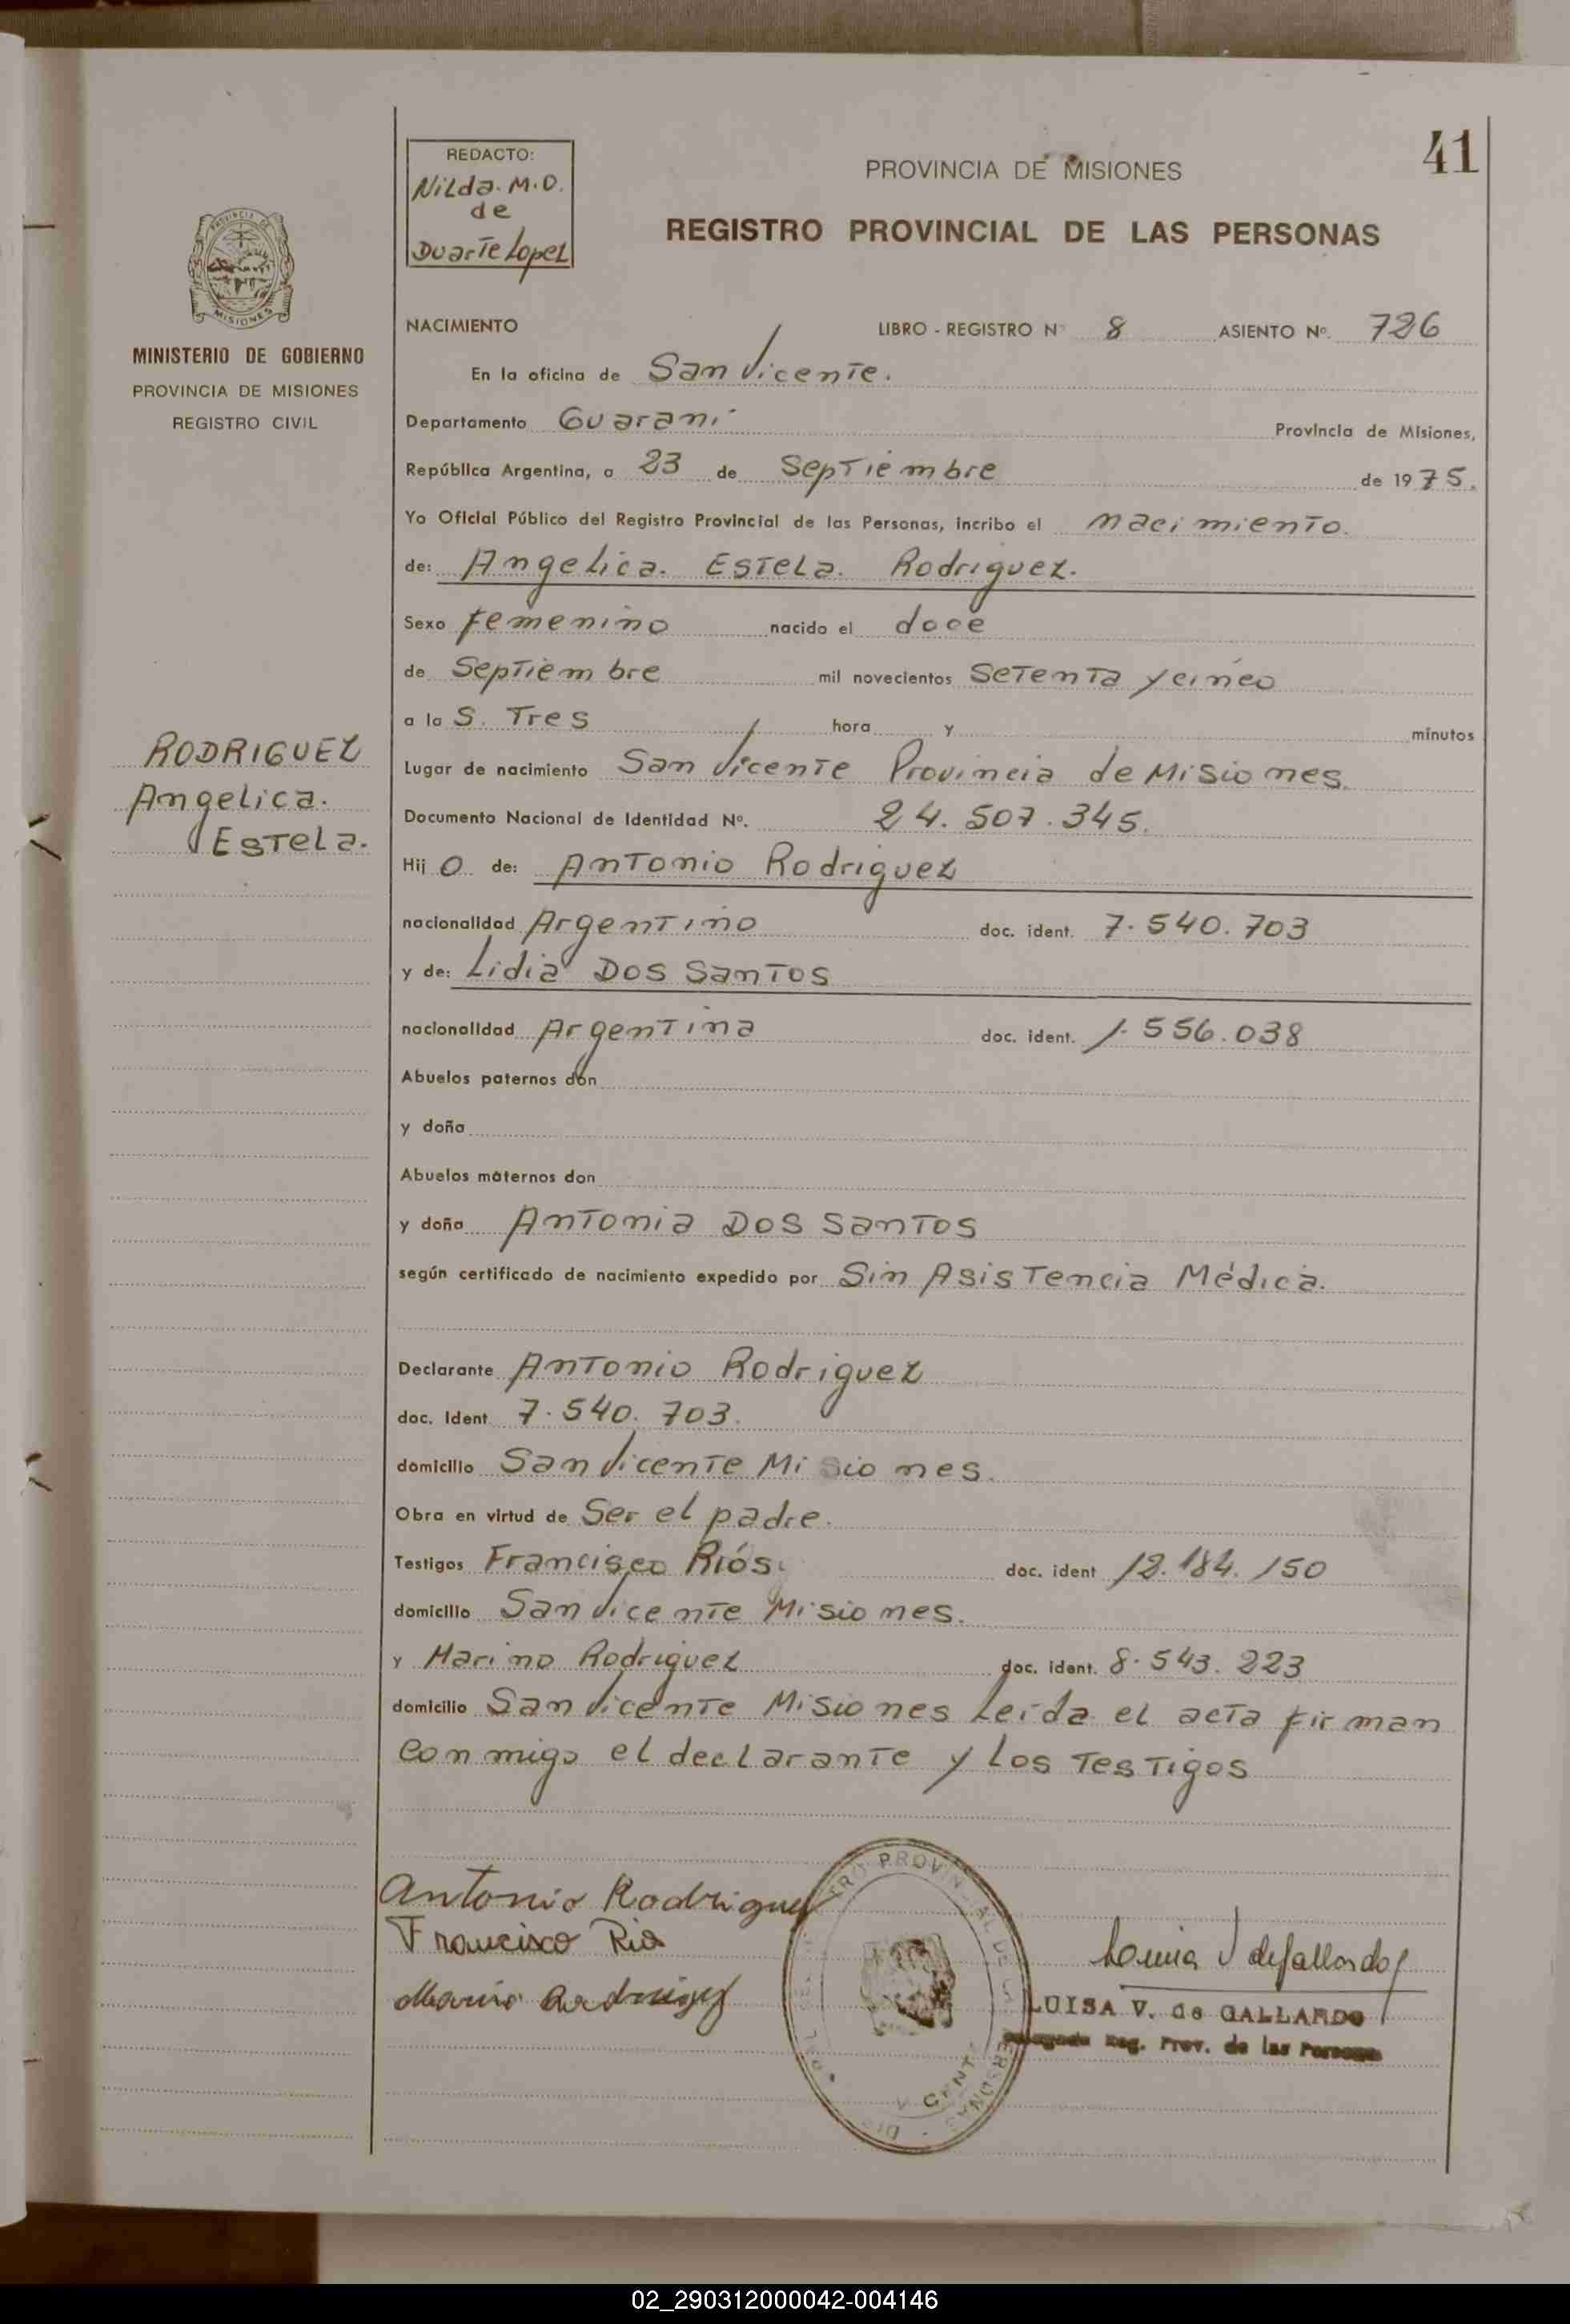 41
REDACTO:
Nilda. M.D.
de
Duarte Lopez
PROVINCIA DE MISIONES
REGISTRO PROVINCIAL DE LAS PERSONAS
PROVINCIA DE
MISIONES
MINISTERIO DE GOBIERNO
PROVINCIA DE MISIONES
REGISTRO CIVIL
NACIMIENTO LIBRO - REGISTRO Nº 8 ASIENTO Nº. 726
En la oficina de San Vicente.
Departamento Guaraní Provincia de Misiones,
República Argentina, a 23 de Septiembre de 1975.
Yo Oficial Público del Registro Provincial de las Personas, incribo el nacimiento.
de: Angelica. Estela. Rodriguez.
Sexo femenino nacido el doce
de Septiembre mil novecientos setenta y cinco
a la S. Tres hora y minutos
RODRIGUEZ
Angelica.
Estela.
Lugar de nacimiento San Vicente Provincia de Misiones.
Documento Nacional de Identidad Nº. 24.507.345.
Hij O de: Antonio Rodriguez
nacionalidad Argentino doc. ident. 7.540.703
y de: Lidia Dos Santos
nacionalidad Argentina doc. ident. 1.556.038
Abuelos paternos don
y doña
Abuelos maternos don
y doña Antonia Dos Santos
según certificado de nacimiento expedido por Sin Asistencia Médica.
Declarante Antonio Rodriguez
doc. Ident 7.540.703.
domicilio San Vicente Misiones.
Obra en virtud de Ser el padre.
Testigos Francisco Riós. doc. ident 12.184.150
domicilio San Vicente Misiones.
y Marino Rodriguez doc. ident. 8.543.223
domicilio San Vicente Misiones Leída el acta firman
conmigo el declarante y los Testigos
Antonio Rodriguez
Francisco Rio
LUISA V. de GALLARDO
Reg. Prov. de las Personas
02_290312000042-004146